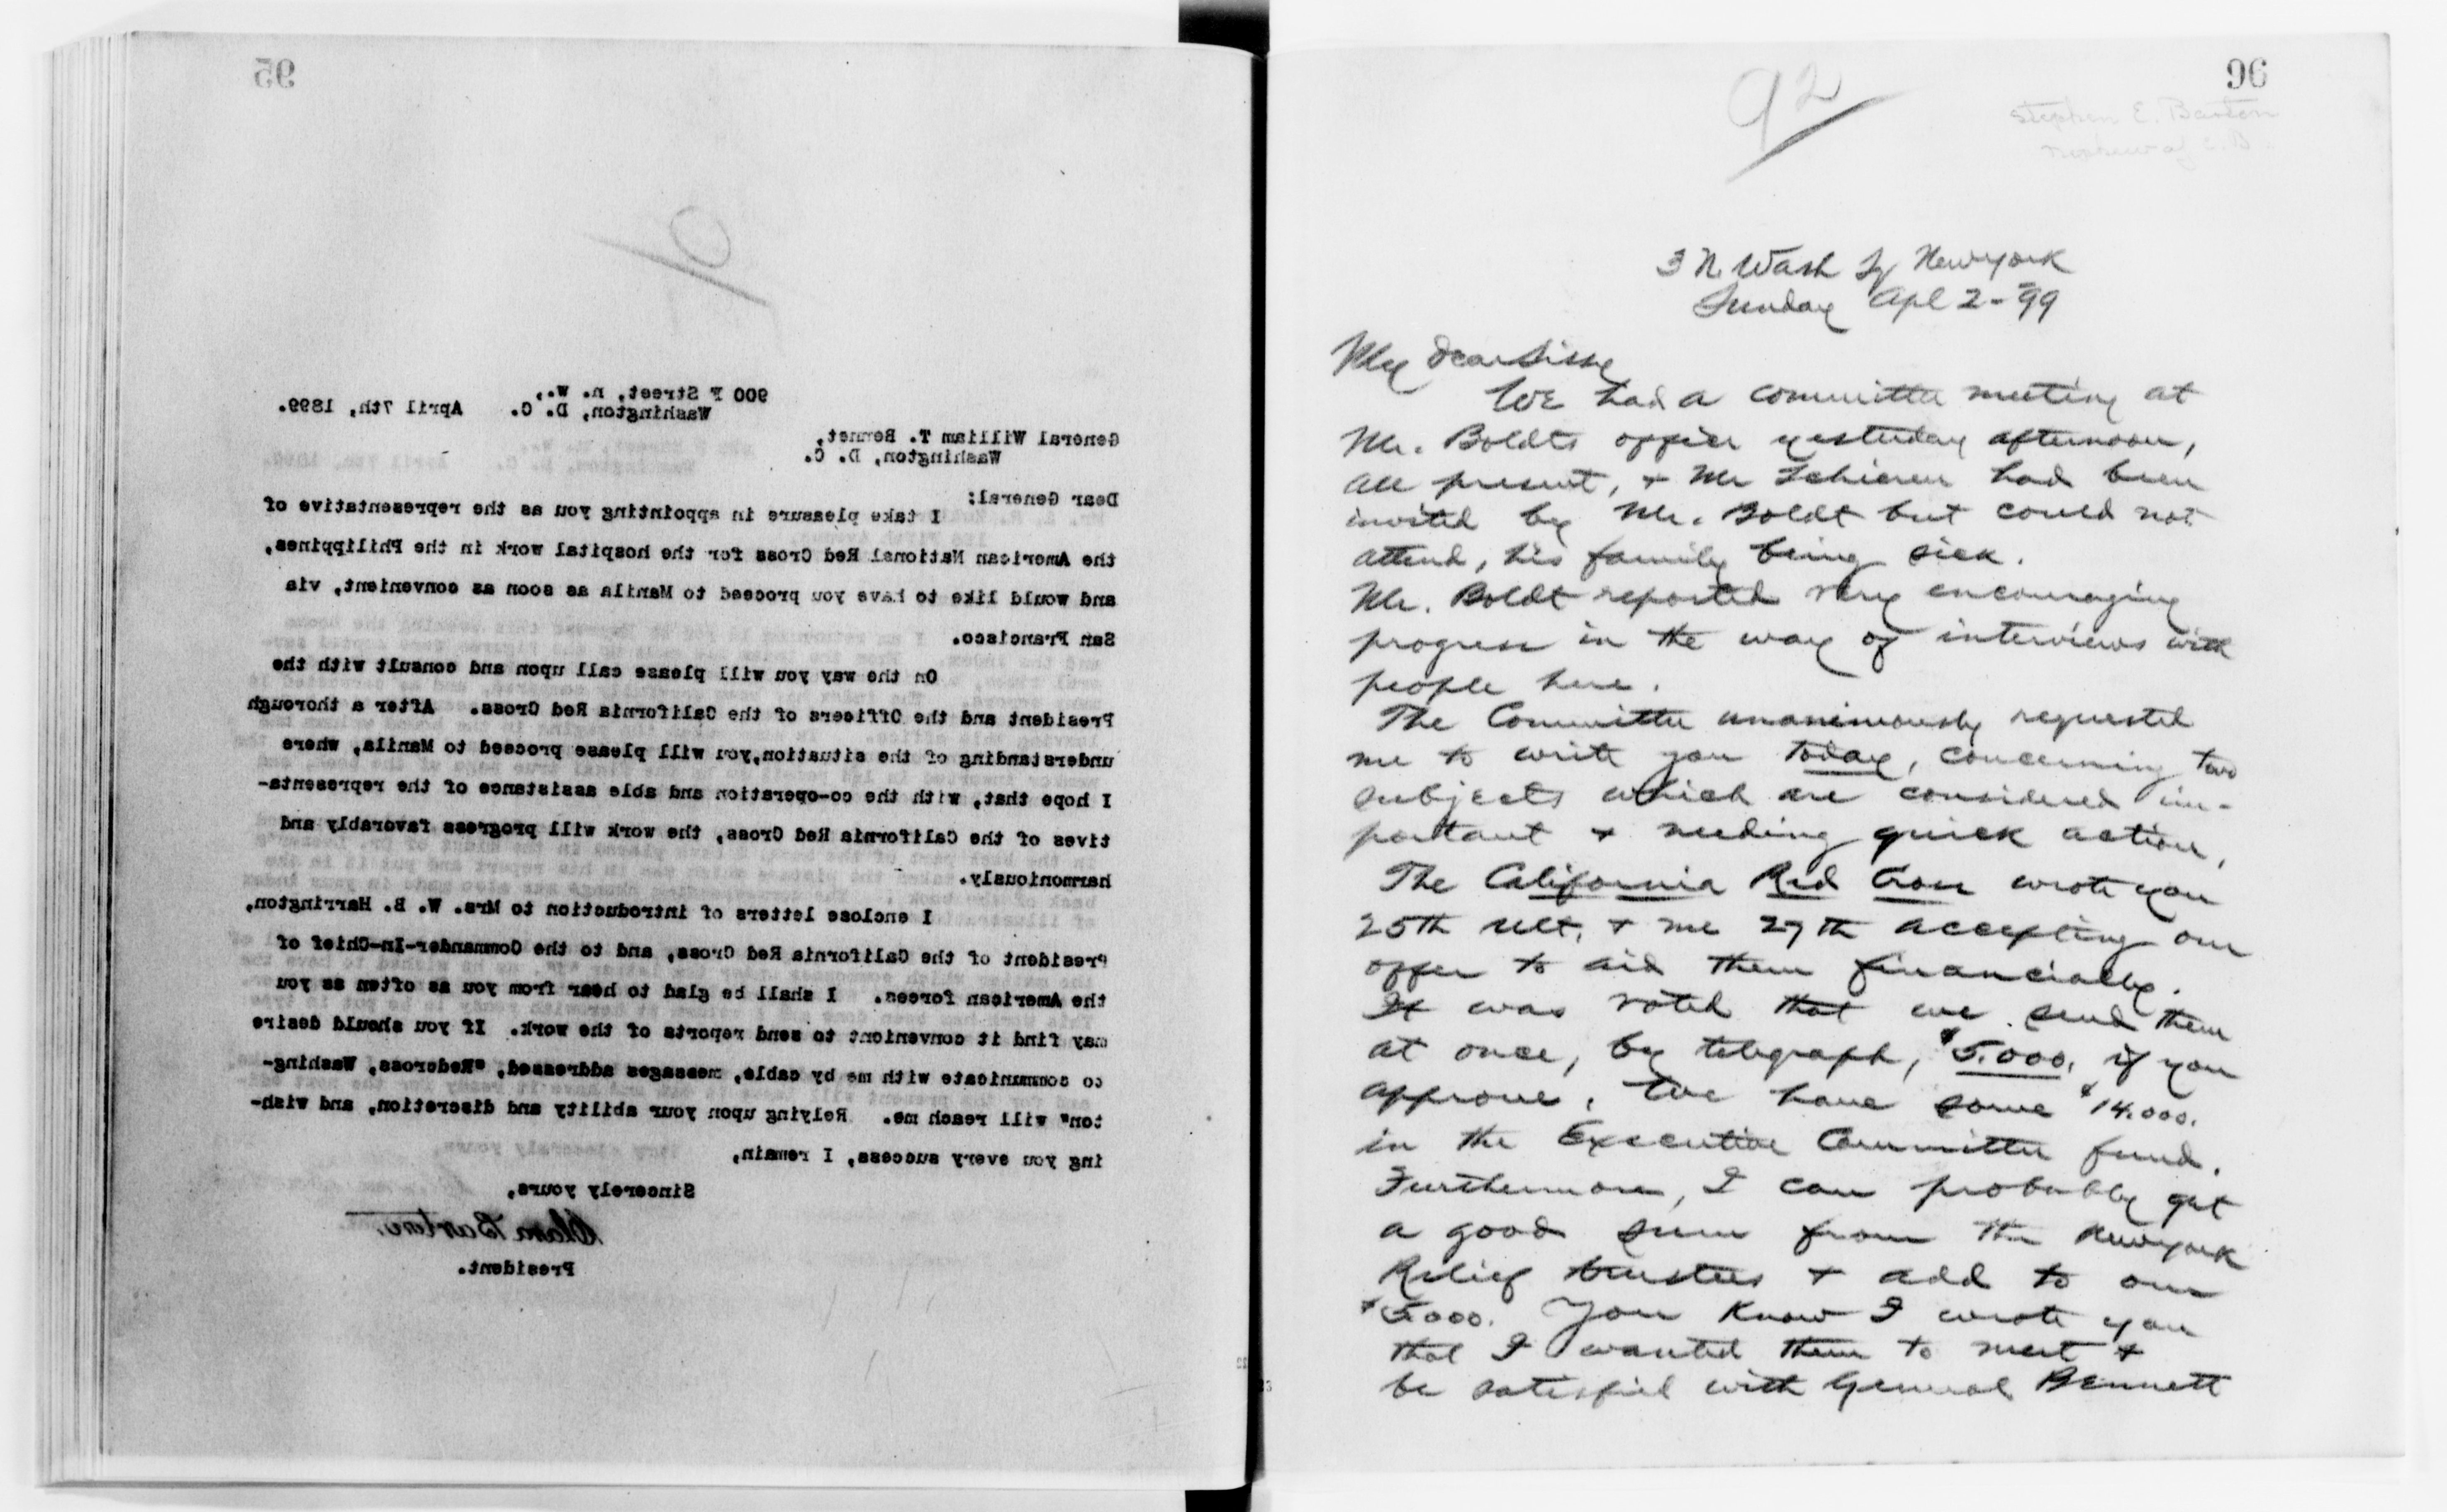 95
900 F Street, n. W.,
Washington, D. C. April 7th, 1899.
General William T. Bennet,
Washington, D. C.
Dear General:
I take pleasure in appointing you as the representative of
the American National Red Cross for the hospital work in the Philippines,
and would like to have you proceed to Manila as soon as convenient, via
San Francisco.
On the way you will please call upon and consult with the
President and the Officers of the California Red Cross. After a thorough
understanding of the situation,you will please proceed to Manila, where
I hope that, with the co-operation and able assistance of the representa-
tives of the California Red Cross, the work will progress favorably and
harmoniously.
I enclose letters of introduction to Mrs. W. B. Harrington,
President of the California Red Cross, and to the Commander-In-Chief of
the American forces. I shall be glad to hear from you as often as you
may find it convenient to send reports of the work. If you should desire
to communicate with me by cable, messages addressed, "Redcross, Washing-
ton" will reach me. Relying upon your ability and discretion, and wish-
ing you every success, I remain,
Sincerely yours,
Clara Barton
President.
96
92
Stephen E. Barton
nephew of C. B.
3 N. Wash Sq New york
Sunday Apl 2-99
My dear Sissy
We had a committee meeting at
Mr. Boldts office yesterday afternoon,
all present, + Mr Schieren had been
invited by Mr. Boldt but could not
attend, his family being sick.
Mr. Boldt reported very encouraging
progress in the way of interviews with
people here.
The Committee unanimously requested
me to write you today, concerning two
subjects which are considered im-
portant + needing quick action,
The California Red Cross wrote you
25th ult. + me 27th accepting our
offer to aid them financially.
It was voted that we send them
at once, by telegraph, $5.000. if you
approve. We have some $14.000.
in the Executive Committee fund.
Furthermore, I can probably get
a good sum from the New york
Relief trustees + add to our
$5.000. You know I wrote you
that I wanted them to meet +
be satisfied with General Bennett